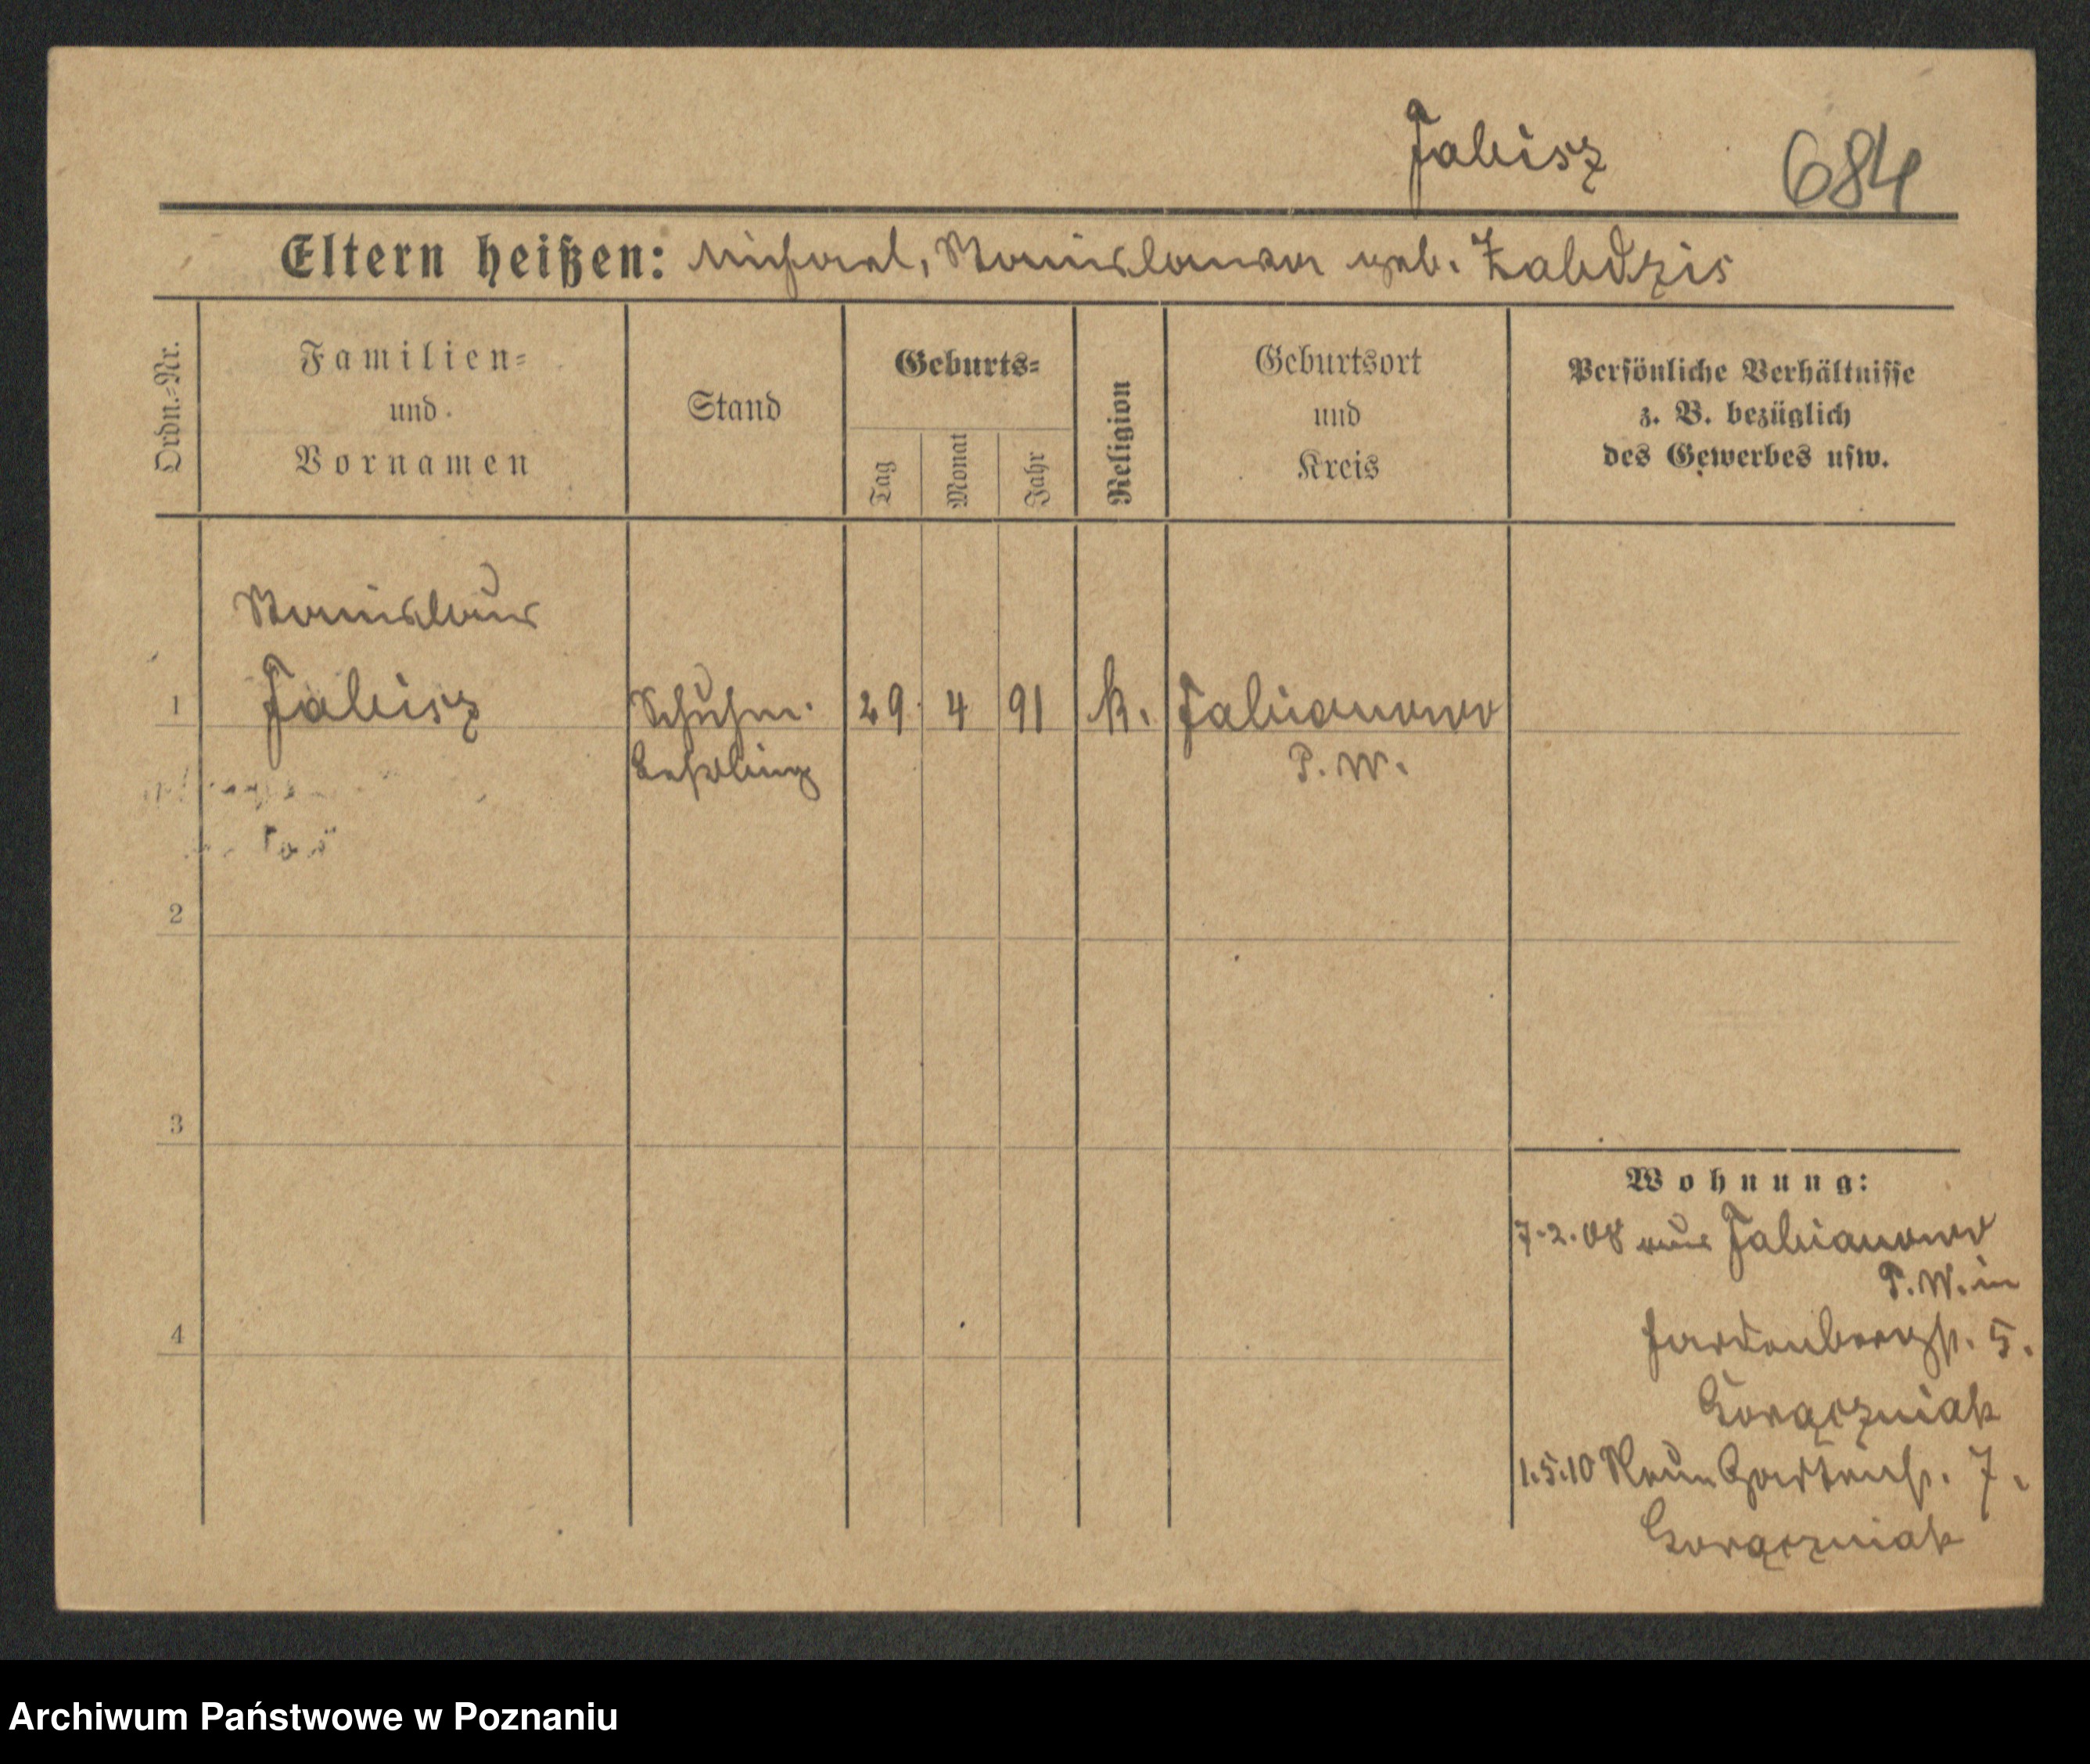 Fabisz 684
Eltern heißen: Michael, Stanislawa geb. Zabdzis
Ordn.-Nr.
Familien-
und
Vornamen
Stand
Geburts-
Tag
Monat
Jahr
Religion
Geburtsort
und
Kreis
Persönliche Verhältnisse
z. B. bezüglich
des Gewerbes usw.
Stanislaus
1 Fabisz Schuhm. 29. 4 91 k. Fabianowo
Lehrling P. W.
2
3
4
Wohnung:
7.2.08 aus Fabianowo
P. W. in
Hardenbergstr. 5.
Gorączniak
1.5.10 Neue Gartenstr. 7.
Gorączniak
Archiwum Państwowe w Poznaniu